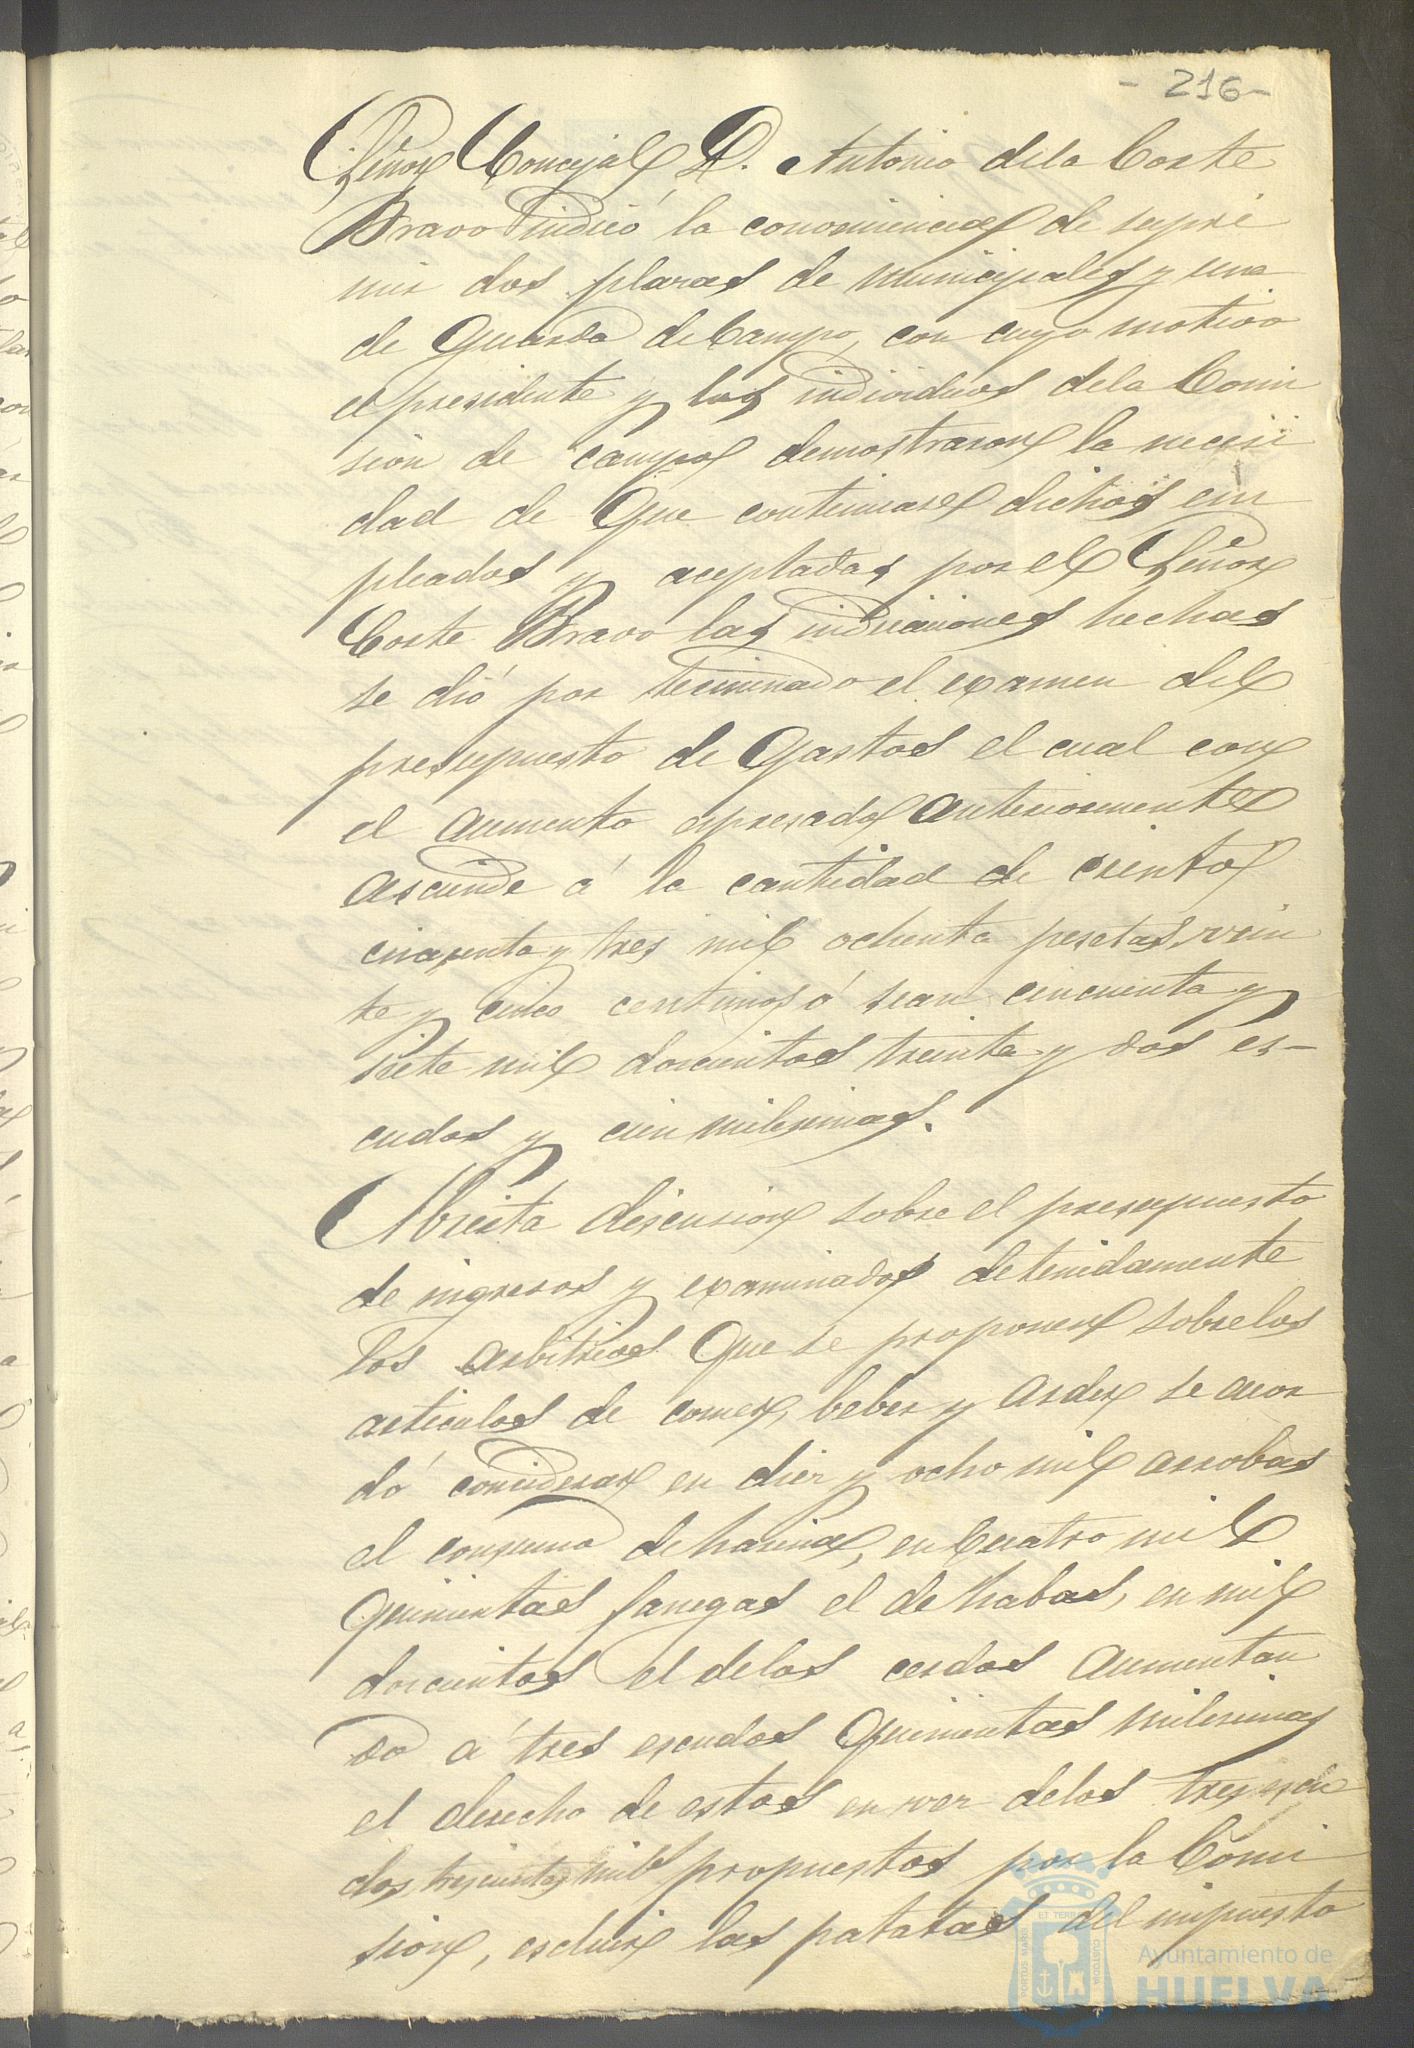 - 216 -
Señor Concejal D. Antonio dela Corte
Bravo indicó la conveniencia de supri
mir dos plazas de municipales y una
de Guarda de Campo, con cuyo motivo
el presidente y los individuos dela Comi
sion de campo demostraron la necesi
dad de que continuase dichos em
pleados y aceptadas por el Señor
Corte Bravo las indicaciones hechas
se dió por terminado el examen del
presupuesto de Gastos el cual con
el aumento espresado anteriormente
asciende á la cantidad de ciento
cincuenta y tres mil ochenta pesetas, vein
te y cinco centimos ó sean cincuenta y
siete mil doscientos treinta y dos es-
cudos y cien milesimas.
Abierta discusion sobre el presupuesto
de ingresos y examinados detenidamente
los arbitrios que se proponen sobre los
articulos de comer, beber y arder se acor
dó considerar en diez y ocho mil arrobas
el consumo de harina, en Cuatro mil
quinientas fanegas el de habas, en mil
doscientos el delos cerdos aumentan
do á tres escudos quinientas milesimas
el derecho de estos en vez delos tres escu
dos trescientas mils propuestos por la Comi
sion, escluir las patatas del impuesto
PORTUS MARIS ET TERRAE CUSTODIA
Ayuntamiento de
HUELVA